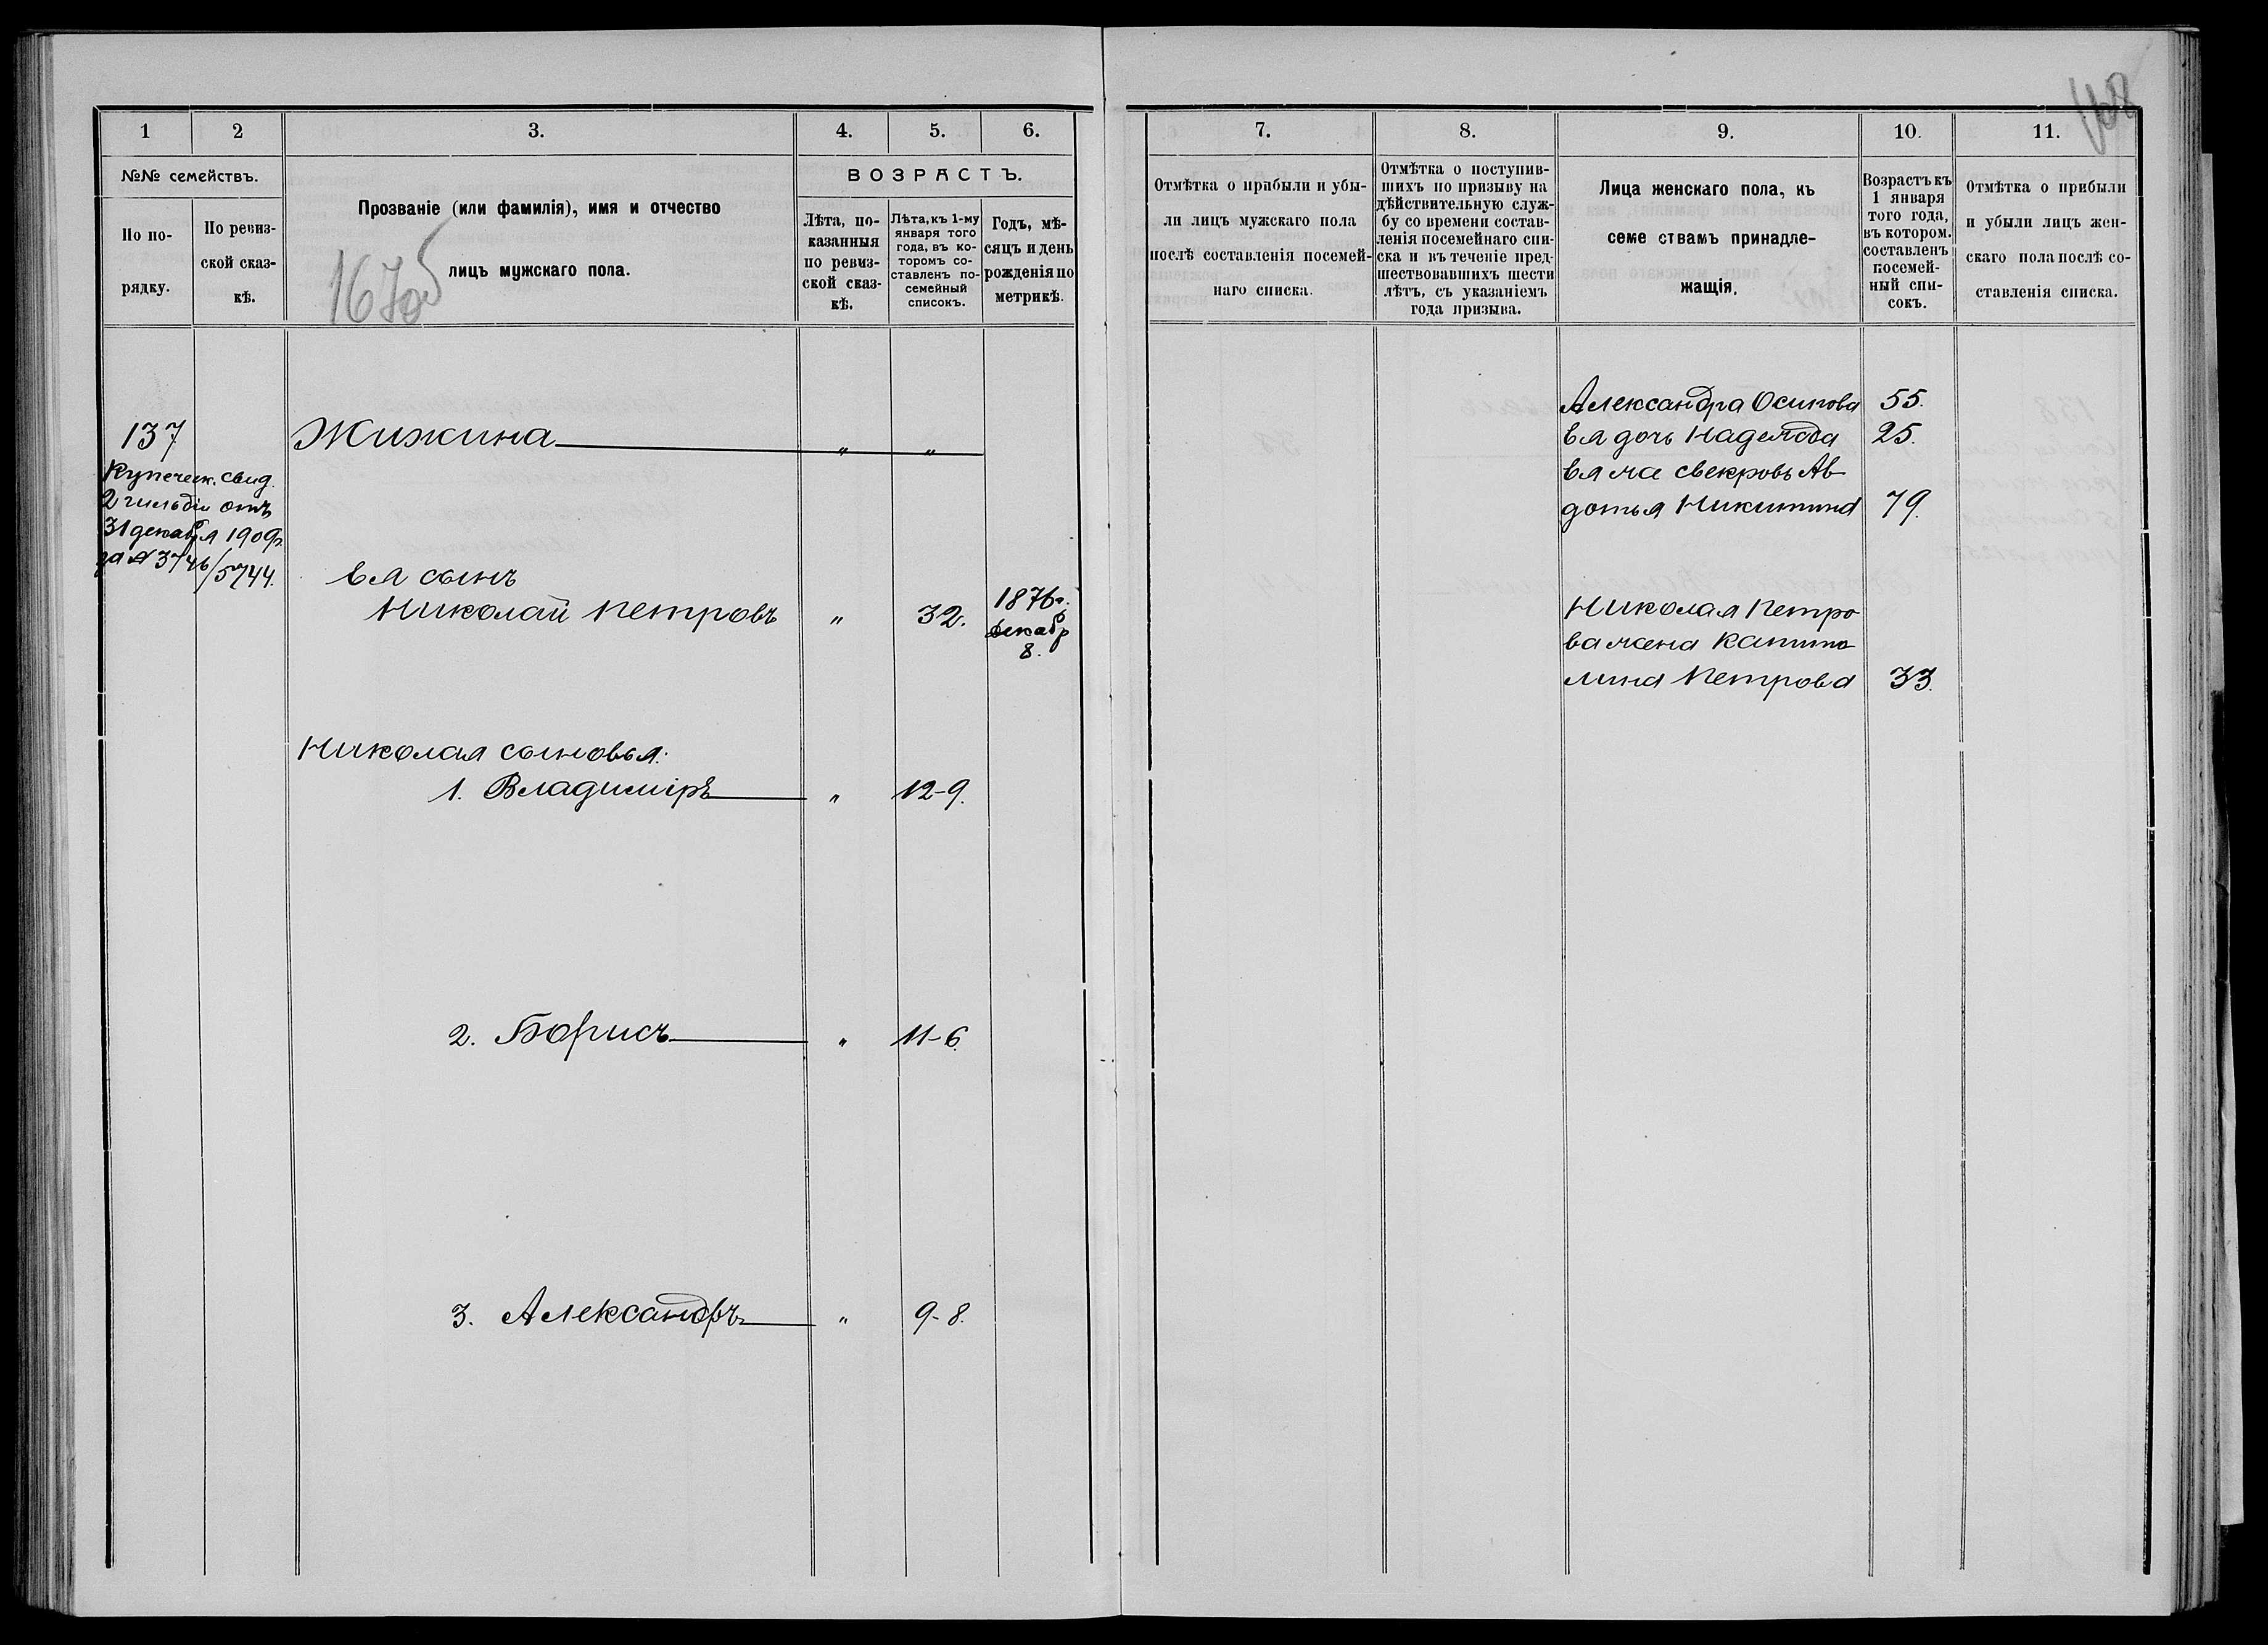 168
1 2 3. 4. 5. 6.
№№ семействъ.
По по-
рядку.
По ревиз-
ской сказ-
кѣ.
Прозваніе (или фамилія), имя и отчество
лицъ мужскаго пола.
167об
ВОЗРАСТЪ.
Лѣта, по-
казанныя
по ревиз-
ской сказ-
кѣ.
Лѣта, къ 1-му
января того
года, въ ко-
торомъ со-
ставленъ по-
семейный
списокъ.
Годъ, мѣ-
сяцъ и день
рожденія по
метрикѣ.
137
Купеческ. свид.
2 гильдіи отъ
31 декабря 1909г.
за № 3746/5744.
Жижина " "
Ея сынъ
Николай Петровъ " 32. 1876г.
Декабр
8.
Николая сыновья:
1. Владиміръ " 12-9.
2. Борисъ " 11-6.
3. Александръ " 9-8.
7. 8. 9. 10. 11.
Отмѣтка о прибыли и убы-
ли лицъ мужскаго пола
послѣ составленія посемей-
наго списка.
Отмѣтка о поступив-
шихъ по призыву на
дѣйствительную служ-
бу со времени состав-
ленія посемейнаго спи-
ска и въ теченіе пред-
шествовавшихъ шести
лѣтъ, съ указаніемъ
года призыва.
Лица женскаго пола, къ
семе ствамъ принадле-
жащія.
Возрастъ къ
1 января
того года,
въ котором.
составленъ
посемей-
ный спи-
сокъ.
Отмѣтка о прибыли
и убыли лицъ жен-
скаго пола послѣ со-
ставленія списка.
Александра Осипова 55.
Ея дочь Надежда 25.
Ея же свекровь Ав
дотья Никитина 79.
Николая Петро
ва жена Капито
лина Петрова 33.